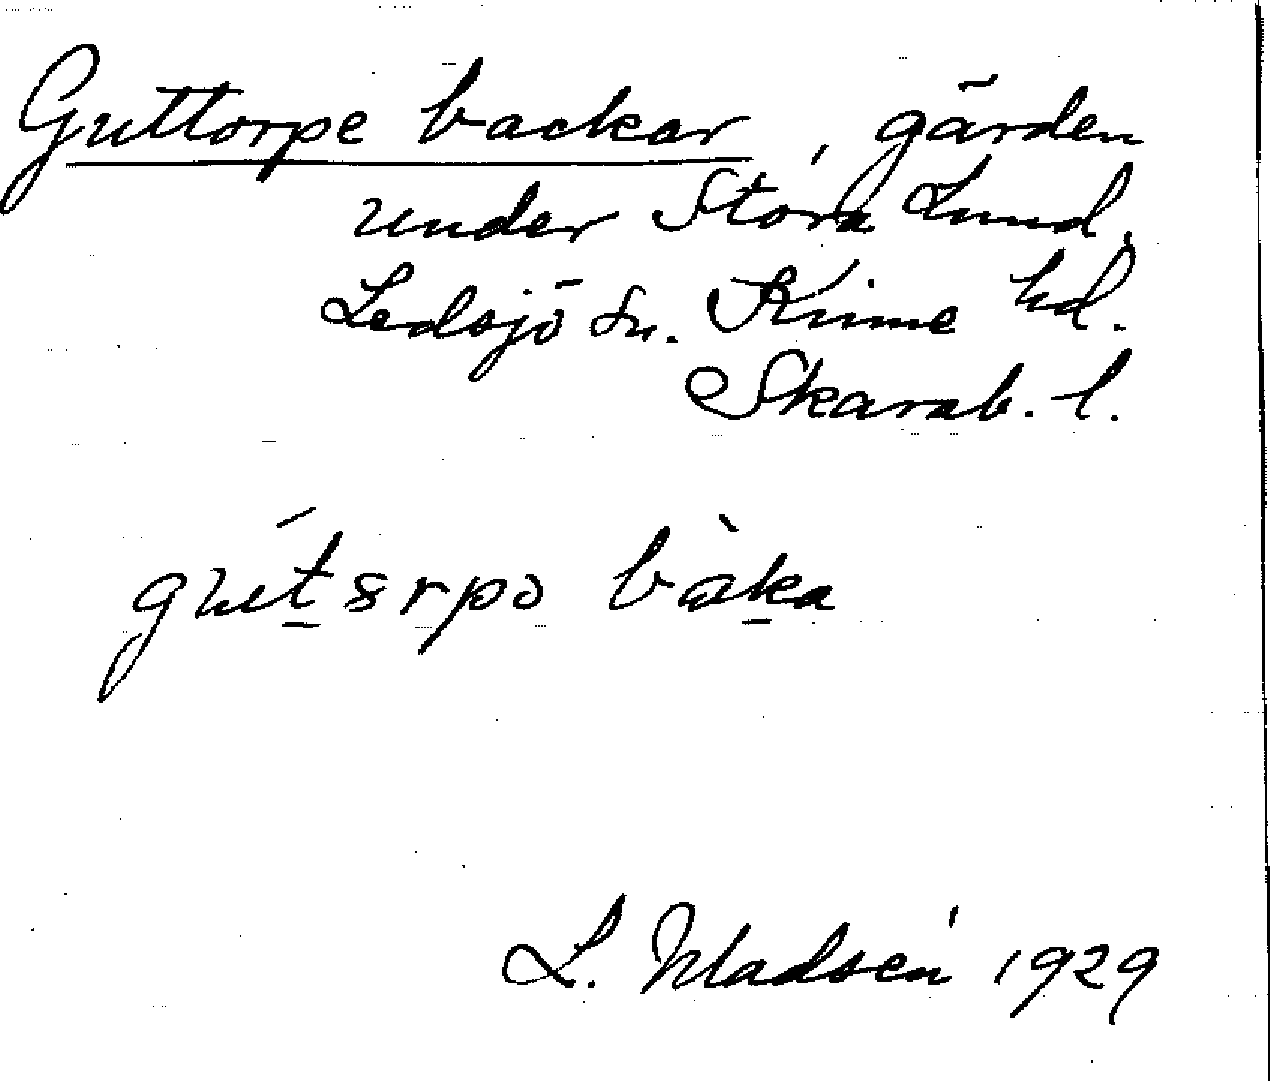 Guttorpe backar, gärden
under Stora Lund,
Ledsjö sn. Kinne hd.
Skarab. l.
gút̲8rpə bàk̲a
L. Madsén 1929